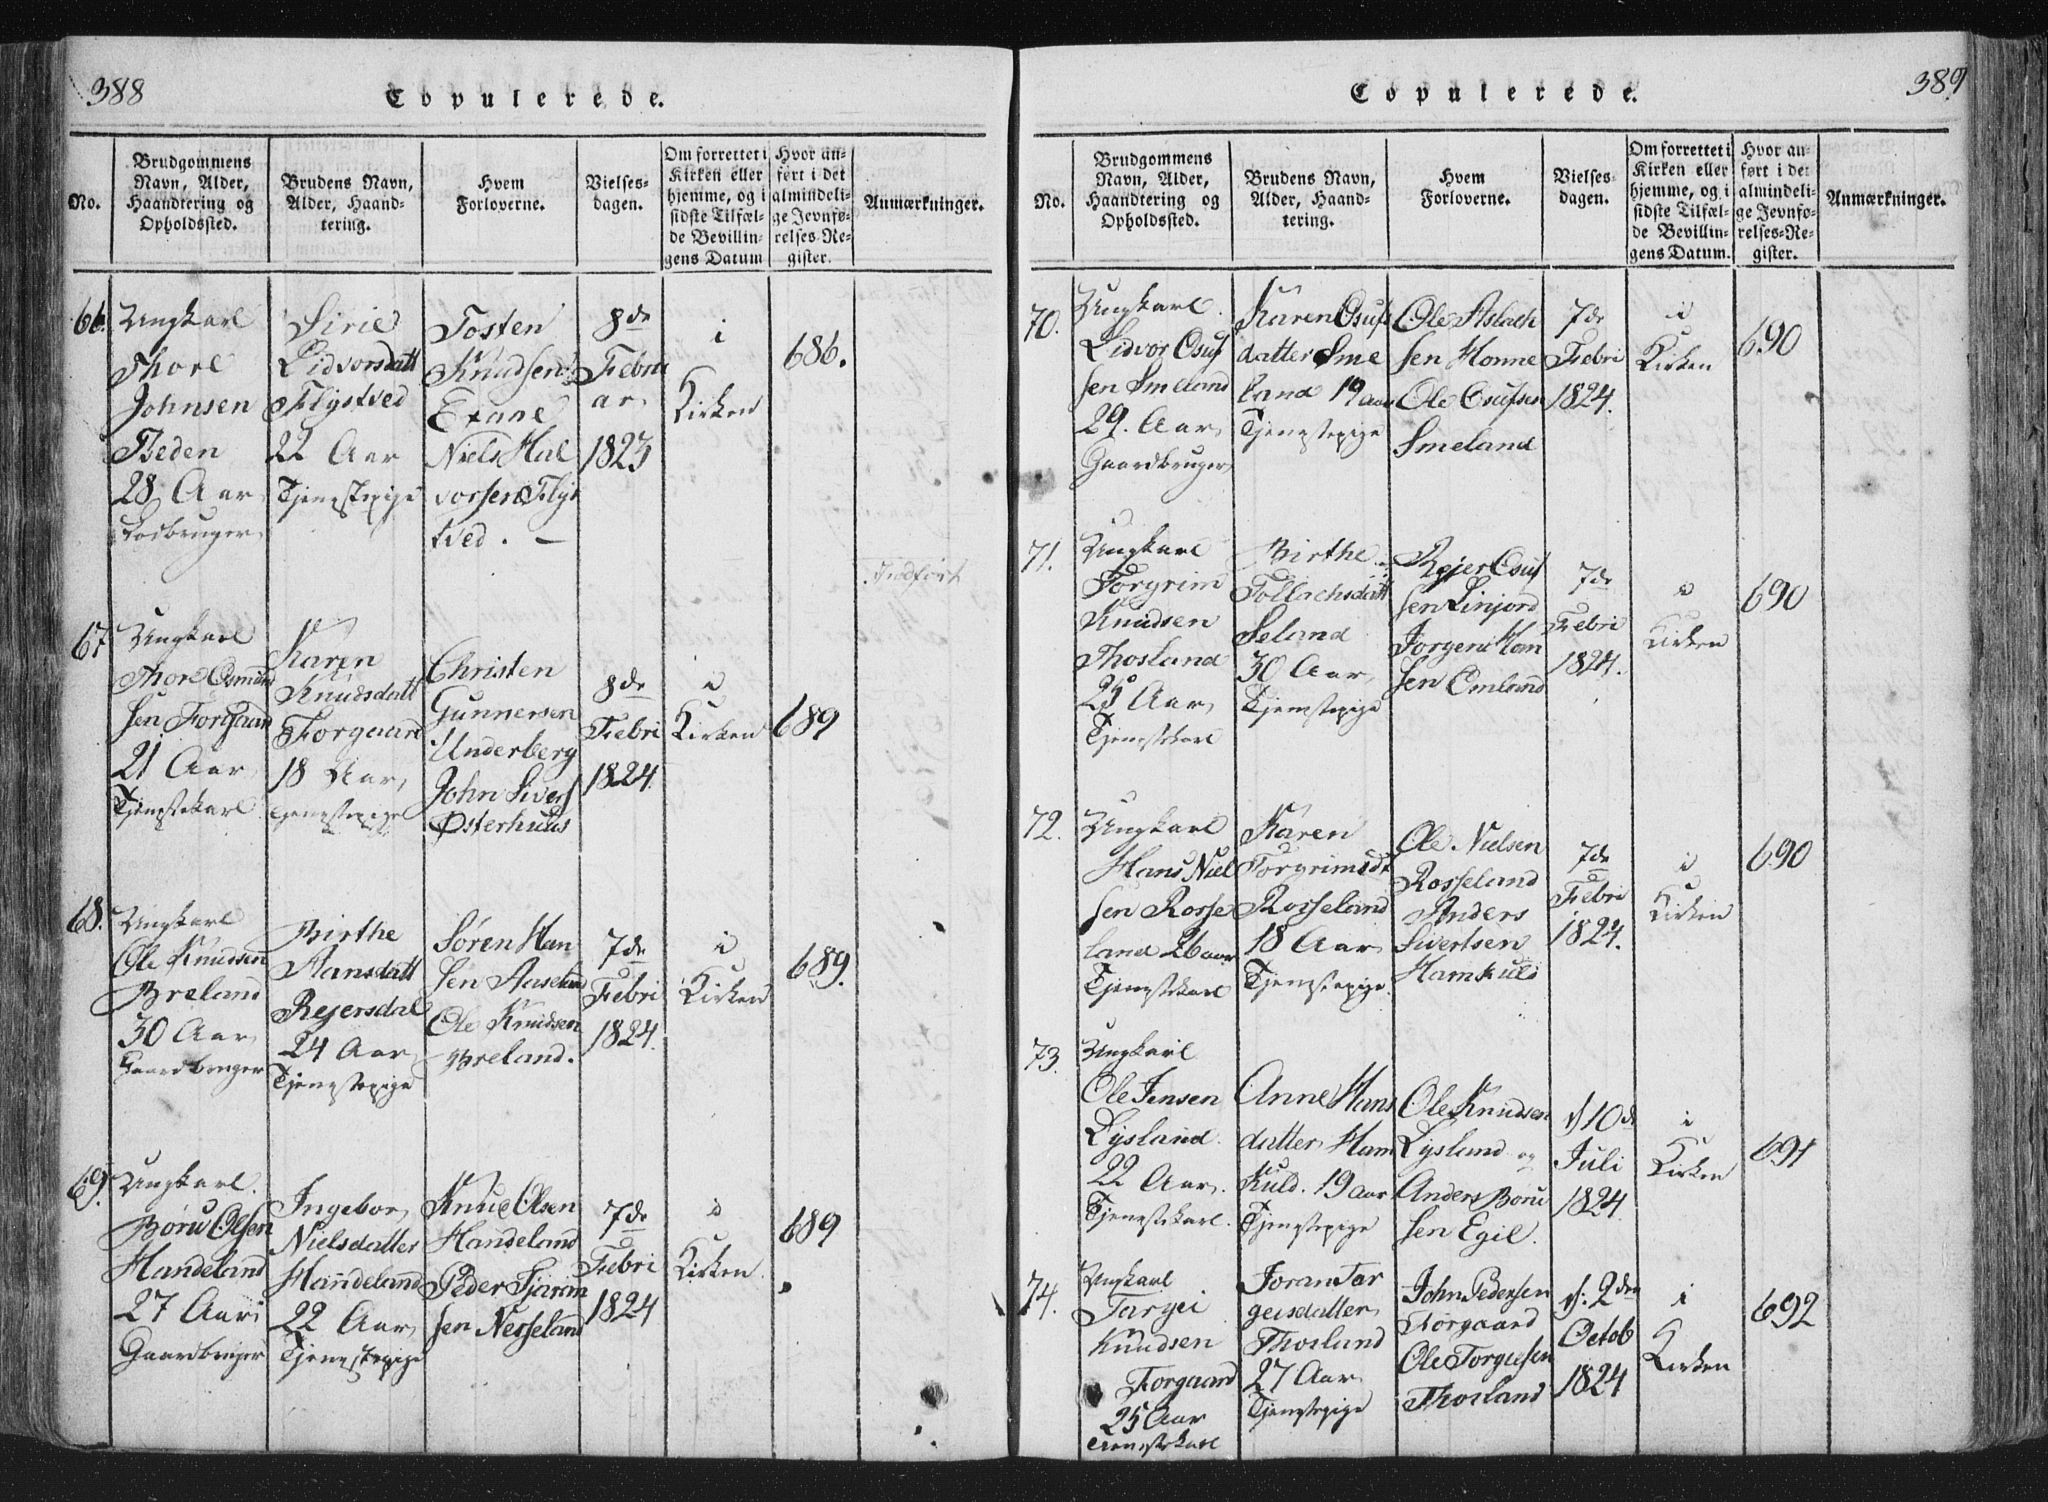 388
Copulerede.
No.
Brudgommens
Navn, Alder,
Haandtering og
Opholdssted.
Brudens Navn,
Alder, Haand-
tering.
Hvem
Forloverne.
Vielses-
dagen.
Om forrettet i
Kirken eller
hjemme, og i
sidste Tilfæl-
de Bevillin-
gens Datum
Hvor an-
ført i det
almindeli-
ge Jevnfø-
relses-Re-
gister.
Anmærkninger.
66.
Ungkarl
Thore
Johnsen
28 Aar
Sirie
Lidvorsdatt
Flystved
22 Aar
Tjenestepige
Tosten
Knudsen
Niels Hal
vorsen Flys
tved. –
8de
Febru
ar
1823
i
Kirken
686.
Indført
67
Ungkarl
Thore Osmund
sen Forgaard
21 Aar
Tjenestekarl
Karen
Knudsdatt
Forgaard
18 Aar,
Tjenestepige
Christen
Gunnersen
Underberg
John Sivers
Østerhuus
8de
Febri
1824.
i
Kirken
689
68.
Ungkarl
Ole Knudsen
Breland
30 Aar
Gaardbruger
Birthe
Hansdatt
Rejersdal
24 Aar
Tjenestepige
Søren Han
sen
Ole Knudsen
Breland.
7de
Febri
1824.
i
Kirken
689.
69.
Ungkarl.
Børu Olsen
Handeland
27 Aar
Gaardbruger
Ingebor
Nielsdatter
Handeland
22 Aar
Tjenestepige
Knud Olsen
Handeland
Peder Tjaran
sen Nesseland
7de
Febri
1824
i
Kirken.
689
389
Copulerede.
No.
Brudgommens
Navn, Alder,
Haandtering og
Opholdssted.
Brudens Navn,
Alder, Haand-
tering.
Hvem
Forloverne.
Vielses-
dagen.
Om forrettet i
Kirken eller
hjemme, og i
sidste Tilfæl-
de Bevillin-
gens Datum.
Hvor an-
ført i det
almindeli-
ge Jevnfø-
relses-Re-
gister.
Anmærkninger.
70.
Ungkarl.
Lidvor Osuf
sen Smeland
29. Aar
Gaardbruger
Karen Osufs
datter Sme
land 19 aar
Tjenestepige
Ole Aslach
sen Honne
Ole Osufsen
Smeland
7de
Febri
1824.
i
Kirken
690
71.
Ungkarl
Torgrim
Knudsen
Thosland
25 Aar
Tjenestekarl
Birthe
Tollachsdatt
Seland
30 Aar
Tjenestepige
Rejer Osuf
sen Linjord
Jorgen Han
sen Omland
7de
Febri
1824.
i
Kirken
690
72.
Ungkarl
Hans Niel
sen Rosse
land 26 aar
Tjenestekarl
Karen
Torgrimsdt
Rosseland
18 Aar
Tjenestepige.
Ole Nielsen
Rosseland
Anders
Sivertsen
Hamkuld
7de
Febri
1824.
i
Kirken
690
73.
Ungkarl
Ole Jensen
Lysland.
22 Aar.
Tjenestekarl.
Anne Hans
datter Ham
kuld. 19 aar
Tjenestepige
Ole Knudsen
Lysland og
Anders Børu
sen Egil.
10de
Juli
1824.
i
Kirken
691
74.
Ungkarl
Targei
Knudsen
Forgaard
25 Aar
Tjenestekarl
Joran Tar
geisdatter
Thosland
27 Aar
Tjenestepige
John Pedersen
Forgaard
Ole Torgiesen
Thosland
2den
Octob
1824
i
Kirken
692